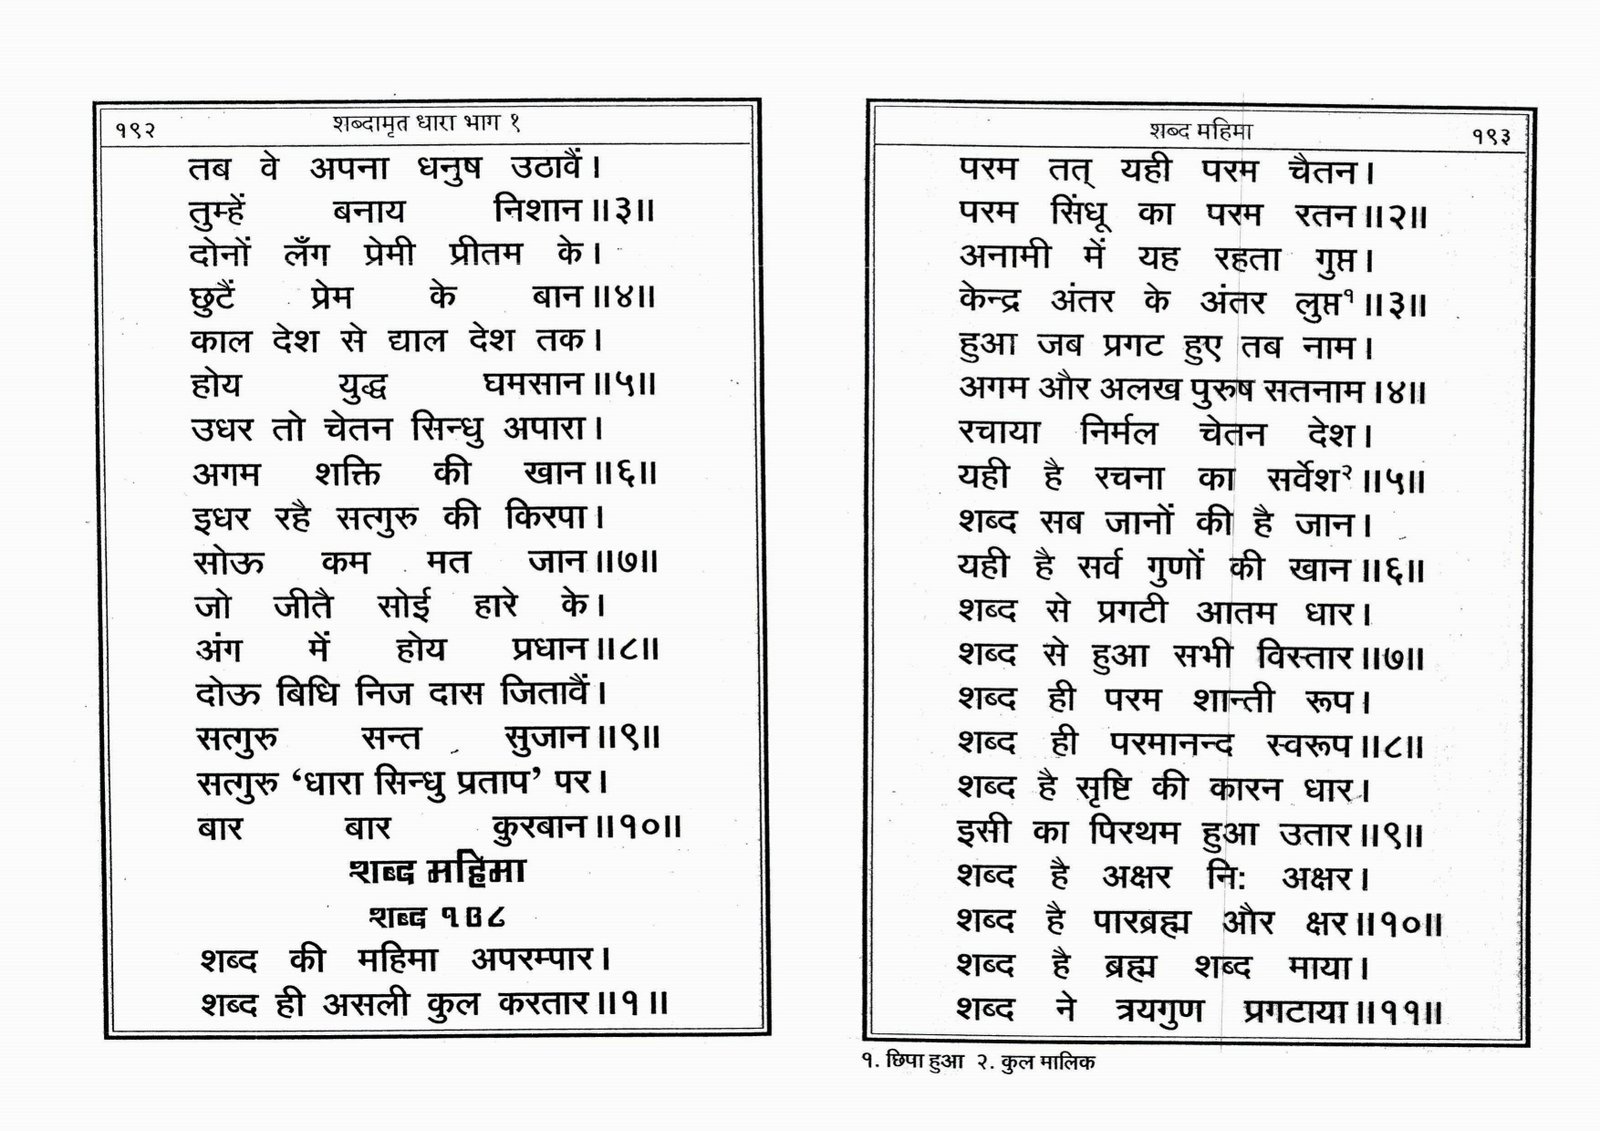 १९२
शब्दामृत धारा भाग १
तब वे अपना धनुष उठावैं।
तुम्हें बनाय निशान॥३॥
दोनों लँग प्रेमी प्रीतम के।
छुटैं प्रेम के बान॥४॥
काल देश से द्याल देश तक।
होय युद्ध घमसान॥५॥
उधर तो चेतन सिन्धु अपारा।
अगम शक्ति की खान॥६॥
इधर रहै सत्गुरु की किरपा।
सोऊ कम मत जान॥७॥
जो जीतै सोई हारे के।
अंग में होय प्रधान॥८॥
दोऊ बिधि निज दास जितावैं।
सत्गुरु सन्त सुजान॥९॥
सत्गुरु ‘धारा सिन्धु प्रताप’ पर।
बार बार कुरबान॥१०॥
शब्द महिमा
शब्द १७८
शब्द की महिमा अपरम्पार।
शब्द ही असली कुल करतार॥१॥
शब्द महिमा
१९३
परम तत् यही परम चैतन।
परम सिंधू का परम रतन॥२॥
अनामी में यह रहता गुप्त।
केन्द्र अंतर के अंतर लुप्त१॥३॥
हुआ जब प्रगट हुए तब नाम।
अगम और अलख पुरुष सतनाम।४॥
रचाया निर्मल चेतन देश।
यही है रचना का सर्वेश२॥५॥
शब्द सब जानों की है जान।
यही है सर्व गुणों की खान॥६॥
शब्द से प्रगटी आतम धार।
शब्द से हुआ सभी विस्तार॥७॥
शब्द ही परम शान्ती रूप।
शब्द ही परमानन्द स्वरूप॥८॥
शब्द है सृष्टि की कारन धार।
इसी का पिरथम हुआ उतार॥९॥
शब्द है अक्षर निः अक्षर।
शब्द है पारब्रह्म और क्षर॥१०॥
शब्द है ब्रह्म शब्द माया।
शब्द ने त्रयगुण प्रगटाया॥११॥
१. छिपा हुआ २. कुल मालिक